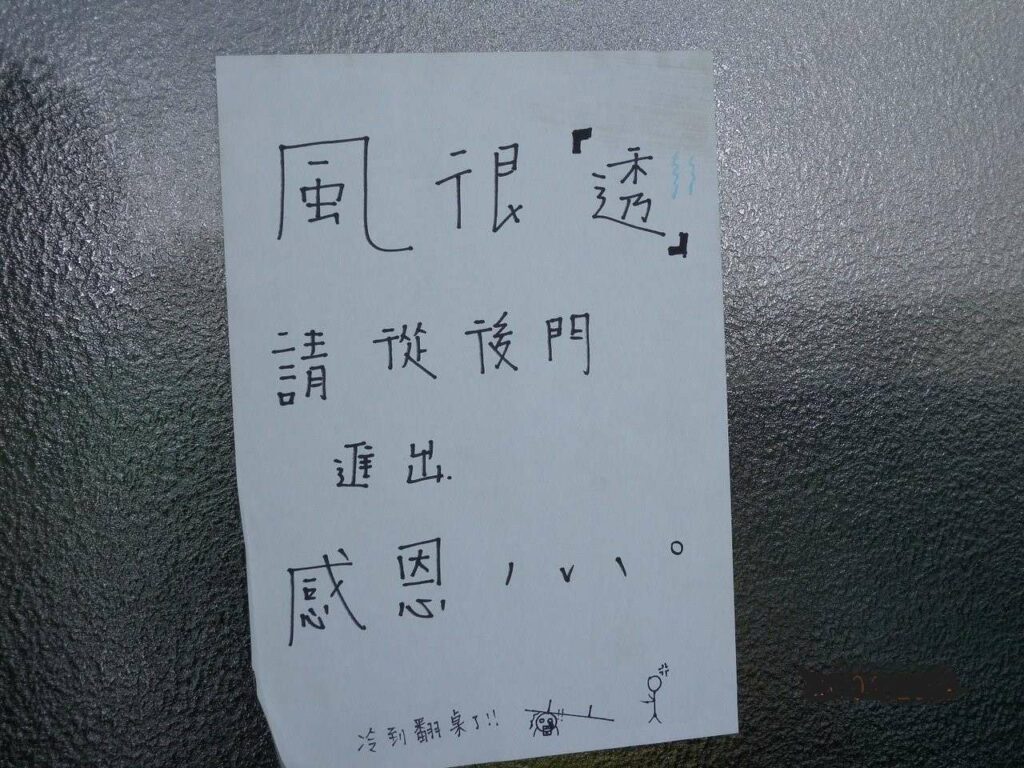 風很『透』
請從後門
進出.
感恩,v、。
冷到翻桌了!!